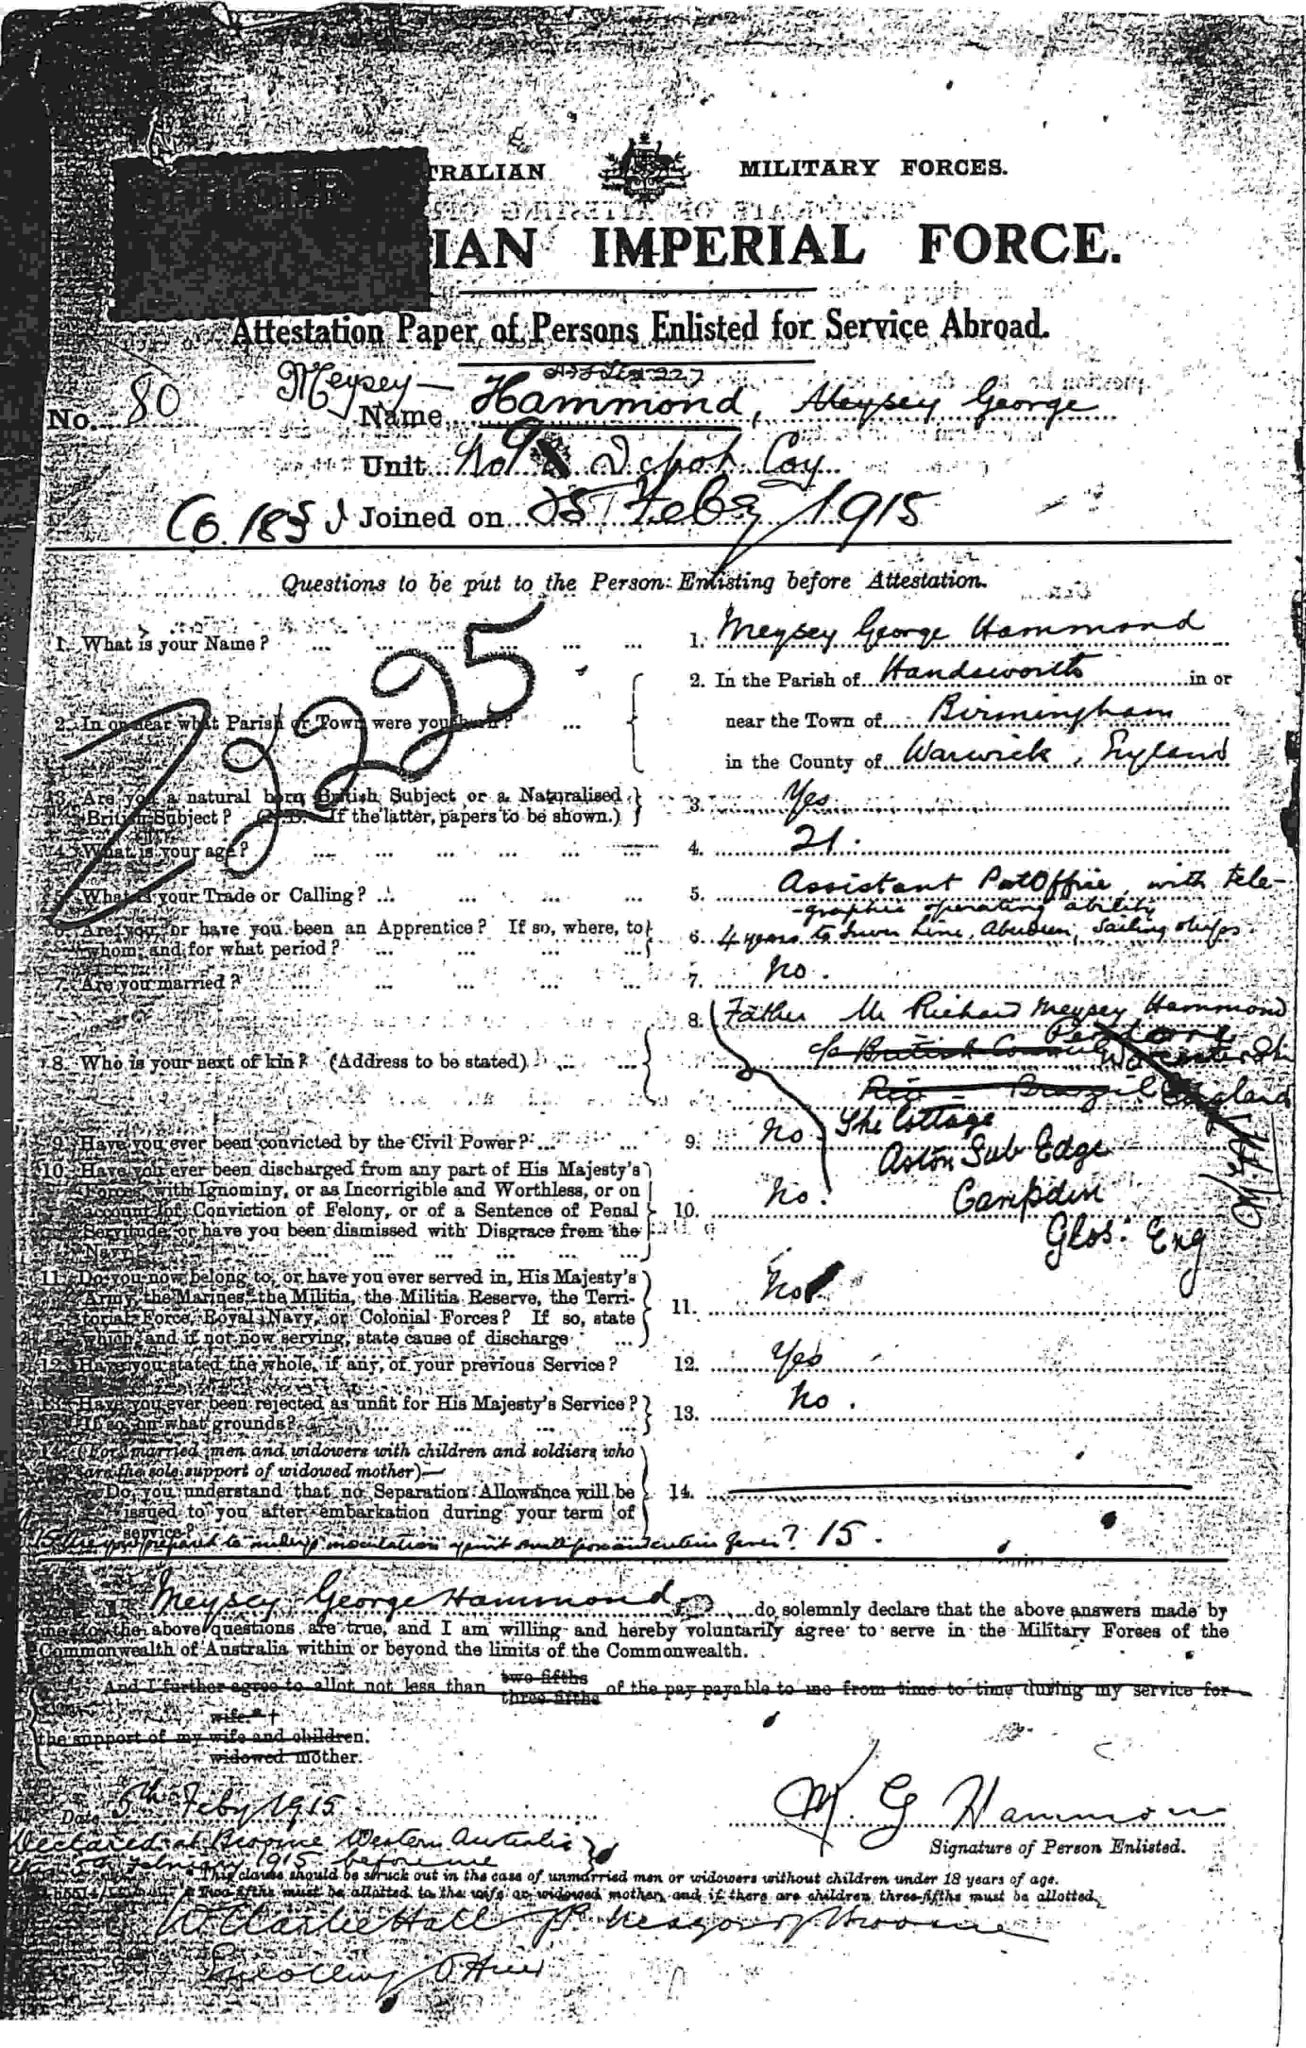 TRALIAN MILITARY FORCES.
IAN IMPERIAL FORCE.
Attestation Paper of Persons Enlisted for Service Abroad.
No. 80 Meysey- Name Hammond, Meysey George
Unit No 9 Depot Coy
Joined on Feby 1915
Questions to be put to the Person Enlisting before Attestation.
23225
1. What is your Name? ... 1. Meysey George Hammond
2. In or near what Parish or Town were you born? ... 2. In the Parish of Handsworth in or
near the Town of Birmingham
in the County of Warwick, England
3. Are you a natural born British Subject or a Naturalised
British Subject? (N.B.—If the latter, papers to be shown.) 3. Yes
4. What is your age? ... 4. 21.
5. What is your Trade or Calling? ... 5. Assistant PostOffice, with tele-
-graphic operating ability
6. Are you, or have you been an Apprentice? If so, where, to
whom, and for what period? ... 6. 4 years to Line, Aberdeen, Sailing ships
7. Are you married? ... 7. No.
8. Who is your next of kin? (Address to be stated) ... 8. Father Mr Richard Meysey Hammond
c/o British Consul
Pershore
Worcestershire
Rio - Brazil England
The Cottage
Aston Sub Edge
Campden
Glos: Eng
9. Have you ever been convicted by the Civil Power? ... 9. No
10. Have you ever been discharged from any part of His Majesty's
Forces, with Ignominy, or as Incorrigible and Worthless, or on
account of Conviction of Felony, or of a Sentence of Penal
Servitude, or have you been dismissed with Disgrace from the
Navy? ... 10. No.
11. Do you now belong to, or have you ever served in, His Majesty's
Army, the Marines, the Militia, the Militia Reserve, the Terri-
torial Force, Royal Navy, or Colonial Forces? If so, state
which, and if not now serving, state cause of discharge ... 11. No
12. Have you stated the whole, if any, of your previous Service? 12. Yes
13. Have you ever been rejected as unfit for His Majesty's Service?
If so, on what grounds? ... 13. No.
14. (For married men and widowers with children and soldiers who
are the sole support of widowed mother)—
Do you understand that no Separation Allowance will be
issued to you after embarkation during your term of
service? 14.
15. Are you prepared to undergo inoculation against smallpox and enteric fever? 15.
Meysey George Hammond do solemnly declare that the above answers made by
me to the above questions are true, and I am willing and hereby voluntarily agree to serve in the Military Forces of the
Commonwealth of Australia within or beyond the limits of the Commonwealth.
And I further agree to allot not less than two-fifths
three-fifths of the pay payable to me from time to time during my service for
the support of my wife.* †
wife and children.
widowed mother.
Date 5th Feby 1915
M. G Hammond
Signature of Person Enlisted.
Declared at Broome Western Australia
this 5th February 1915 before me
This clause should be struck out in the case of unmarried men or widowers without children under 18 years of age.
† Two-fifths must be allotted to the wife or widowed mother, and if there are children three-fifths must be allotted.
Hall JP Mayor of Broome
Enrolling Officer